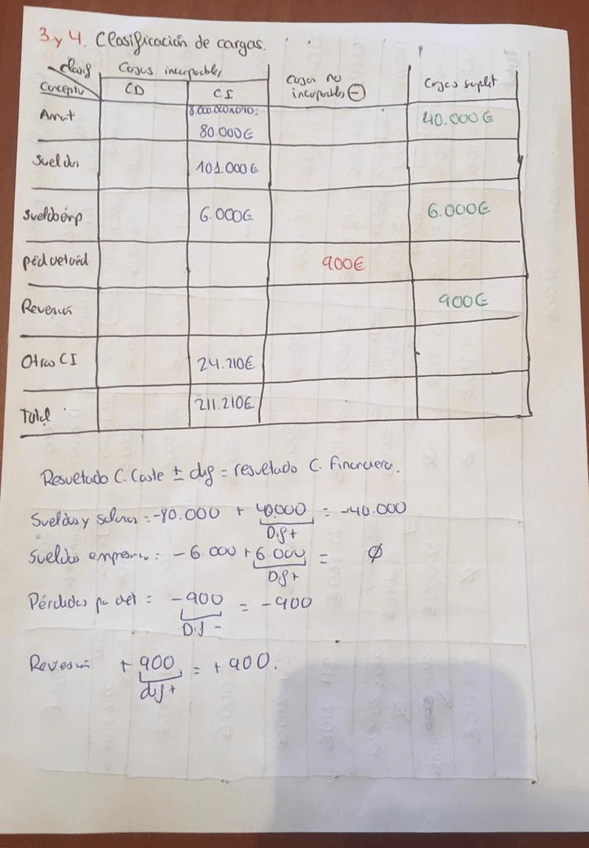 3 y 4. Clasificación de cargas.
Clasif Cargas incorporables Cargas no Cargas suplet
Concepto CD CI incorporables ⊖
8.000.000x0'10=
Amot 80.000€ 40.000€
Sueldos 101.000€
Sueldo emp 6.000€ 6.000€
900€
Reversión 900€
Otros CI 24.210€
Total 211.210€
Resultado C. Coste ± dif = resultado C. Financiero.
Sueldos y salarios = -80.000 + 40000 = -40.000
Dif +
Sueldos empresario = -6.000 + 6.000 = Ø
Dif +
Pérdidas por det = -900 = -900
Dif -
Reversión + 900 = + 900.
dif +